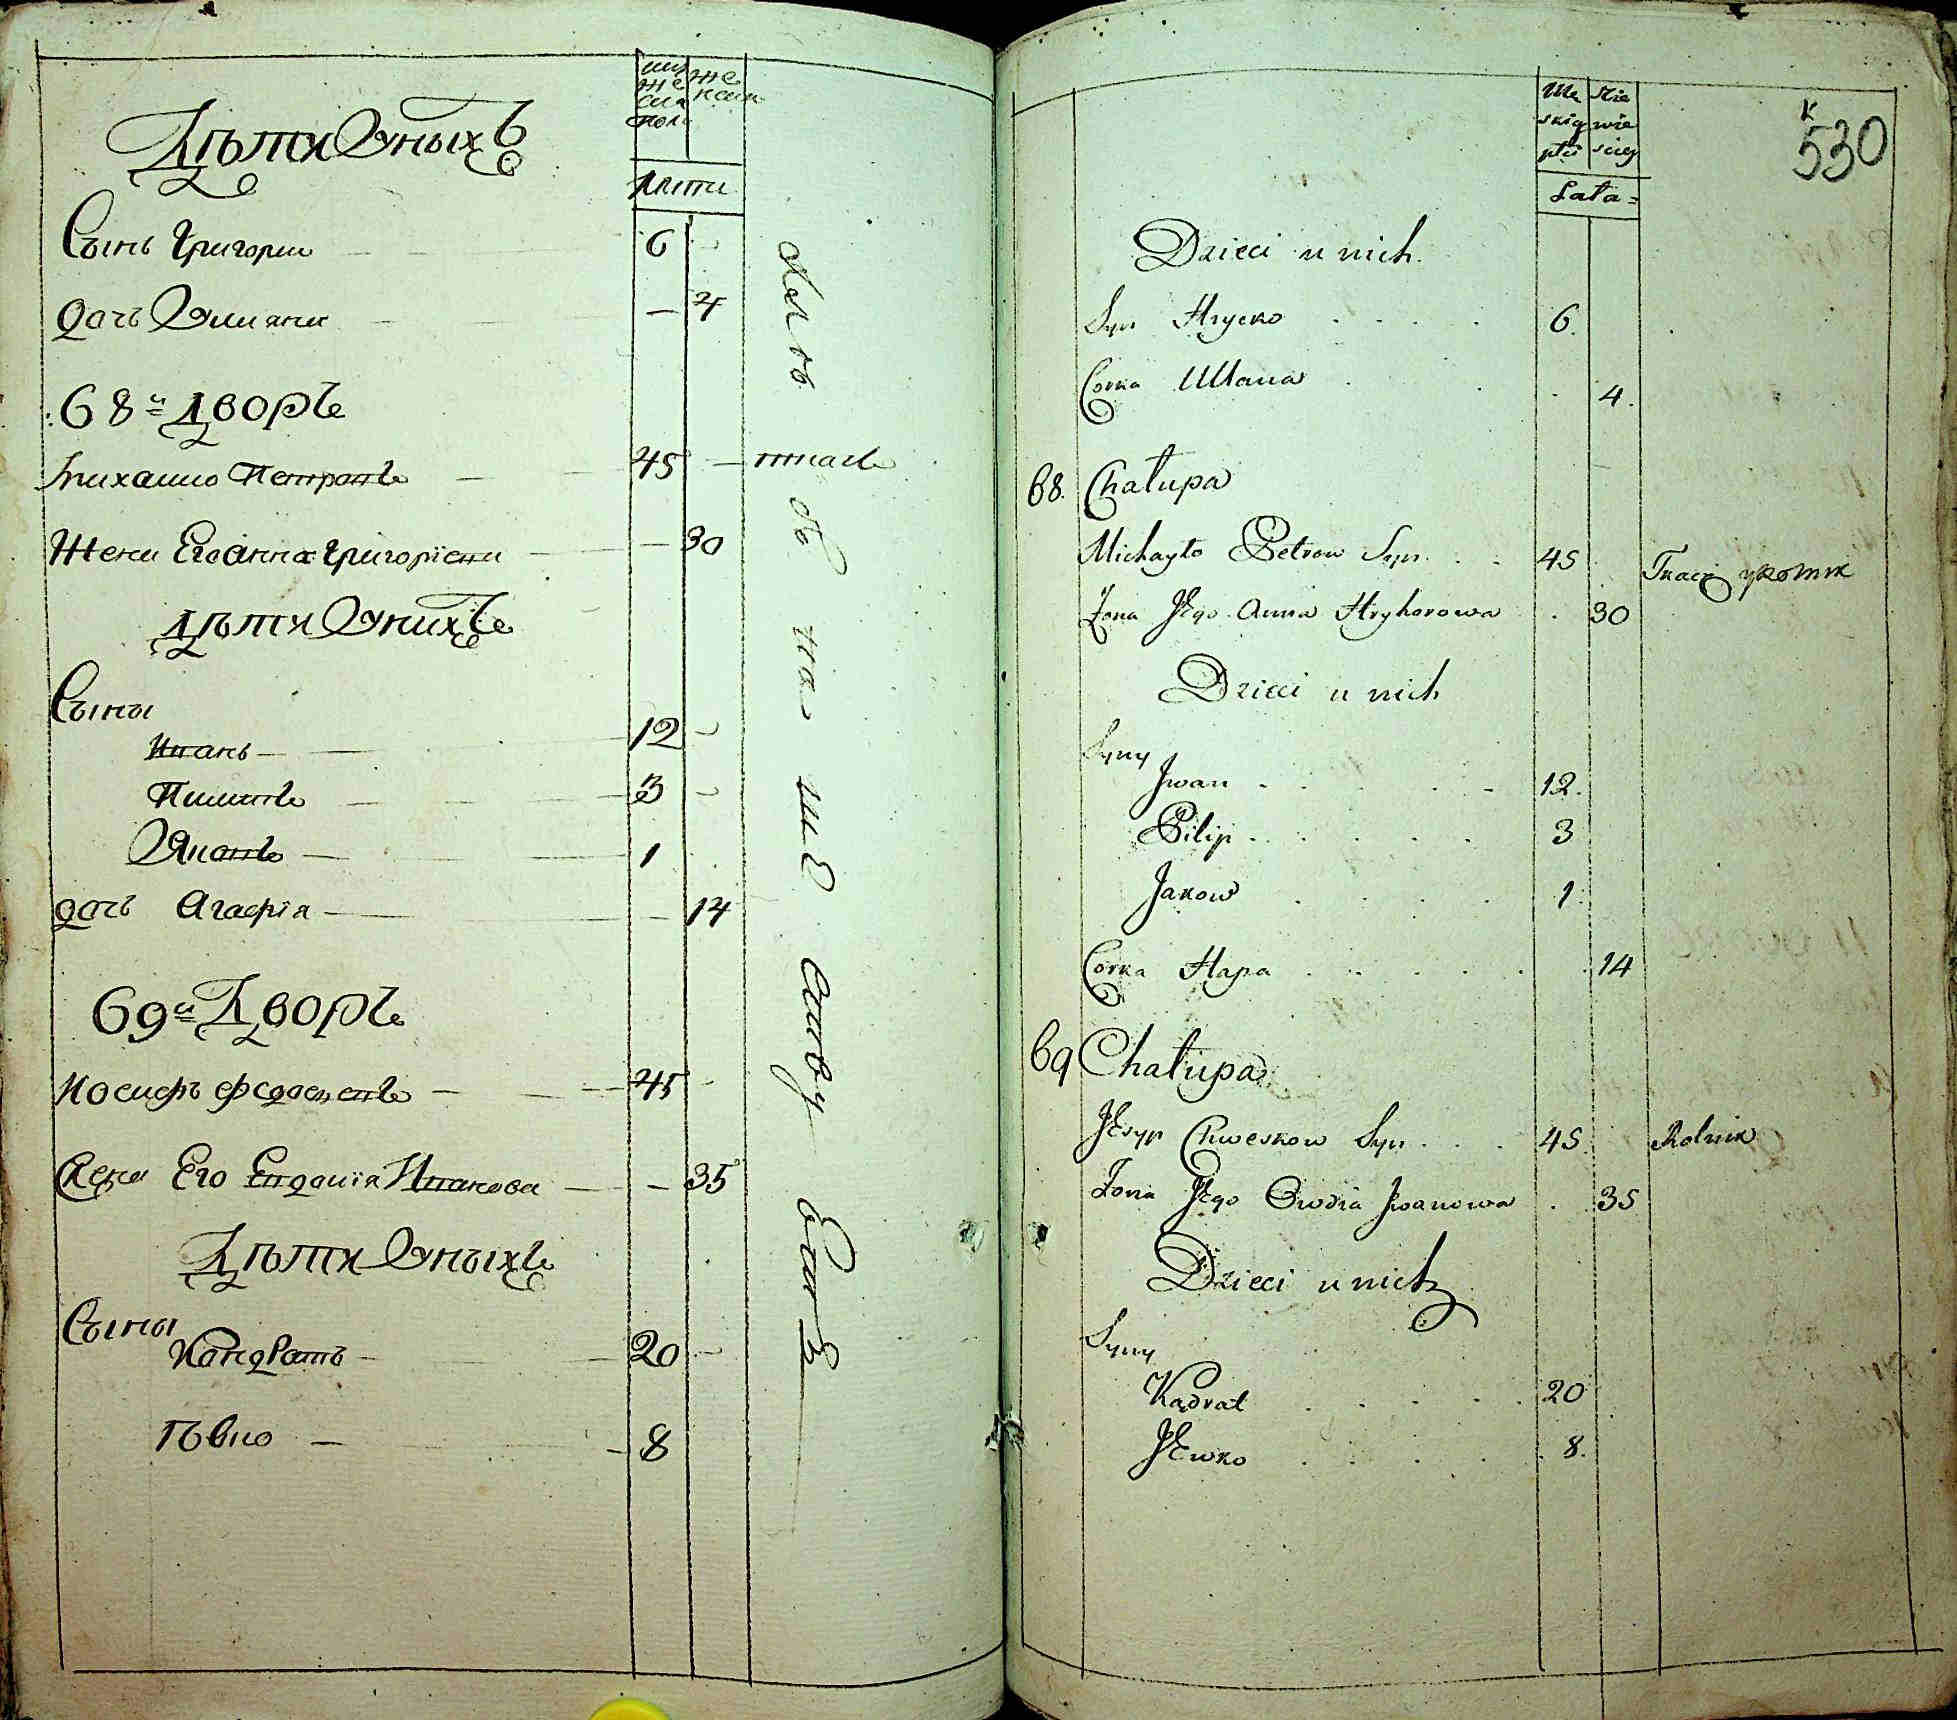 муже
ска
пола
женска
Лѣты
Дѣти Уныхъ
Сынъ Григорий 6
Дочъ Уляна 4
68й Дворъ
Михайло Петровъ 45 ткачъ
Жена Его Анна Григориева 30
Дѣти Унихъ
Сыны
Иванъ 12
Пилипъ 3
Яковъ 1
дочъ Агафія 14
69й Дворъ
Иосифъ Федосеевъ 45
Жена Его Евдокія Иванова 35
Дѣти Уныхъ
Сыны
Кандратъ 20
Иѣвко 8
530
Mę
skiey
płci
Żie
wie
skiey
Lata
Dzieci u nich
Syn Hrycko 6.
Corka Ullana 4.
68. Chałupa
Michayło Petrow Syn 45 Tkacz
Żona JEgo Anna Hryhorowa 30
Dzieci u nich
Syny
Jwan 12.
Pilip 3
Jakow 1.
Corka Hapa 14
69 Chałupa
JEsyp Chweskow Syn 45. Rolnik
Żona JEgo Owdia Jwanowa 35
Dzieci u nich
Syny
Kądrat 20
JEwko 8.